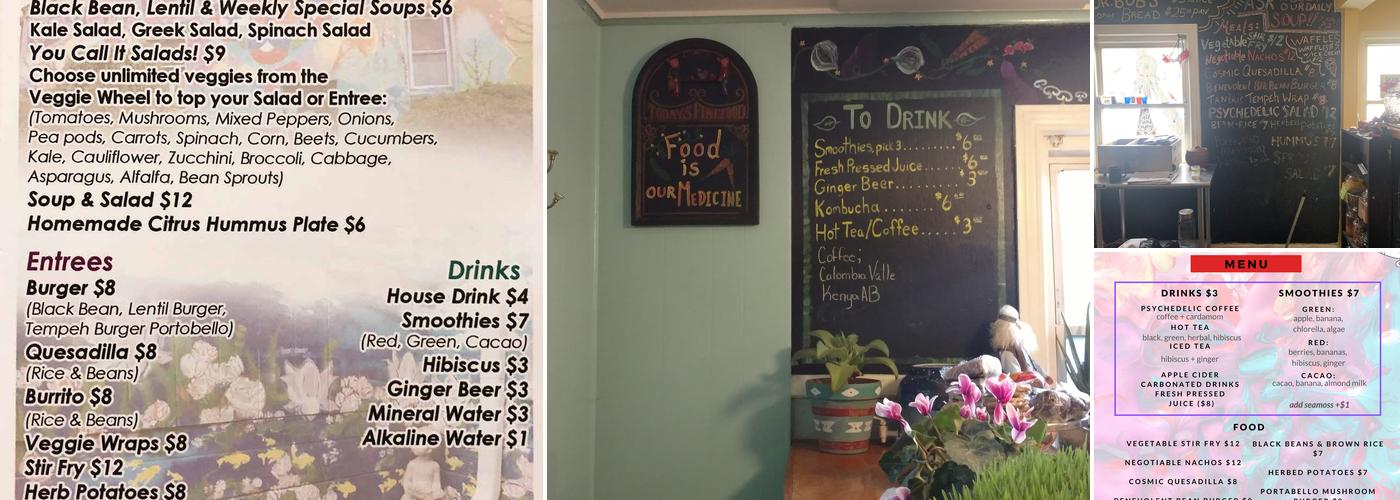 Black Bean, Lentil & Weekly Special Soups $6
Kale Salad, Greek Salad, Spinach Salad
You Call It Salads! $9
Choose unlimited veggies from the
Veggie Wheel to top your Salad or Entree:
(Tomatoes, Mushrooms, Mixed Peppers, Onions,
Pea pods, Carrots, Spinach, Corn, Beets, Cucumbers,
Kale, Cauliflower, Zucchini, Broccoli, Cabbage,
Asparagus, Alfalfa, Bean Sprouts)
Soup & Salad $12
Homemade Citrus Hummus Plate $6
Entrees
Burger $8
(Black Bean, Lentil Burger,
Tempeh Burger Portobello)
Quesadilla $8
(Rice & Beans)
Burrito $8
(Rice & Beans)
Veggie Wraps $8
Stir Fry $12
Herb Potatoes $8
Drinks
House Drink $4
Smoothies $7
(Red, Green, Cacao)
Hibiscus $3
Ginger Beer $3
Mineral Water $3
Alkaline Water $1
Food
is
OUR MEDICINE
TO DRINK
Smoothies, pick 3........$6
Fresh Pressed Juice.....$6
Ginger Beer........$3
Kombucha.......$6
Hot Tea/Coffee.....$3
Coffee;
Colombia Valle
Kenya AB
OUR DAILY
SOUP!!
Meals:
Vegetable STIR FRY $12
Negotiable NACHOS $12
WAFFLES
COSMIC QUESADILLA $8
BENEVOLENT BEAN BURGER $8
TANTRIC TEMPEH WRAP $8
PSYCHEDELIC SALAD $12
BEAN+RICE $7 HERBED POTATO
HUMMUS $7
SALAD $7
MENU
DRINKS $3
PSYCHEDELIC COFFEE
coffee + cardamom
HOT TEA
black, green, herbal, hibiscus
ICED TEA
hibiscus + ginger
APPLE CIDER
CARBONATED DRINKS
FRESH PRESSED
JUICE ($8)
SMOOTHIES $7
GREEN:
apple, banana,
chlorella, algae
RED:
berries, bananas,
hibiscus, ginger
CACAO:
cacao, banana, almond milk
add seamoss +$1
FOOD
VEGETABLE STIR FRY $12
NEGOTIABLE NACHOS $12
COSMIC QUESADILLA $8
BLACK BEANS & BROWN RICE
$7
HERBED POTATOES $7
PORTABELLO MUSHROOM